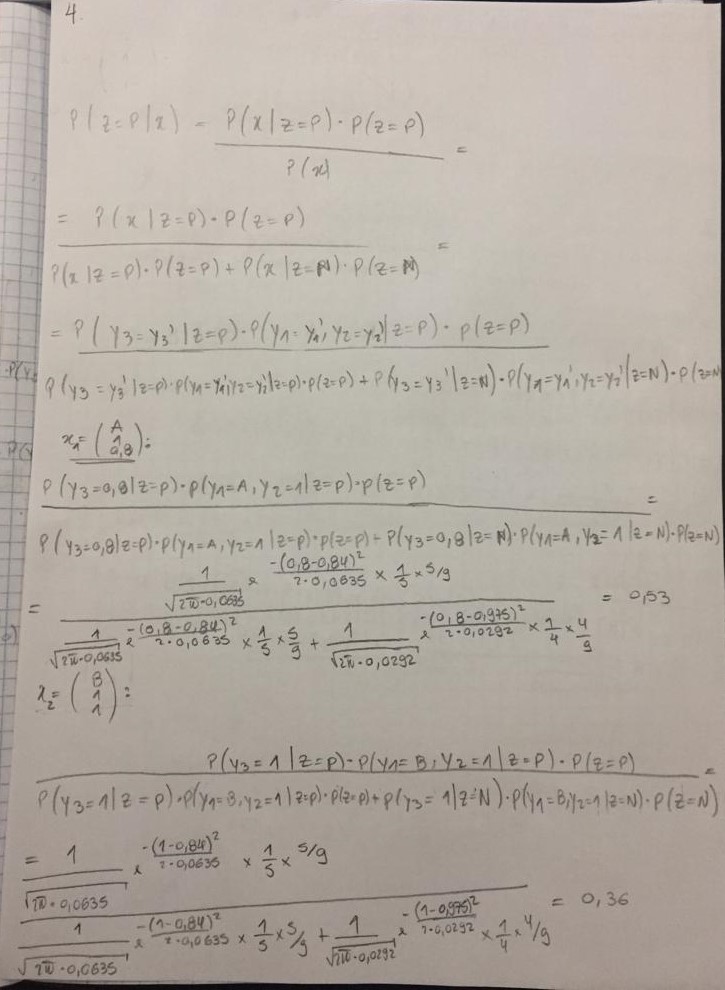 4.
P(z=P|x) = P(x|z=P)·P(z=P) / P(x) =
= P(x|z=P)·P(z=P) / P(x|z=P)·P(z=P) + P(x|z=N)·P(z=N) =
= P(y3=y3'|z=P)·P(y1=y1', y2=y2'|z=P)·P(z=P)
P(y3=y3'|z=P)·P(y1=y1', y2=y2'|z=P)·P(z=P) + P(y3=y3'|z=N)·P(y1=y1', y2=y2'|z=N)·P(z=N
x1 = (A 1 0,8):
P(y3=0,8|z=P)·P(y1=A, y2=1|z=P)·P(z=P) =
P(y3=0,8|z=P)·P(y1=A, y2=1|z=P)·P(z=P) + P(y3=0,8|z=N)·P(y1=A, y2=1|z=N)·P(z=N)
1/√(2π·0,0635) e^(-(0,8-0,84)²/(2·0,0635)) × 1/5 × 5/9
= = 0,53
1/√(2π·0,0635) e^(-(0,8-0,84)²/(2·0,0635)) × 1/5 × 5/9 + 1/√(2π·0,0292) e^(-(0,8-0,975)²/(2·0,0292)) × 1/4 × 4/9
x2 = (B 1 1):
P(y3=1|z=P)·P(y1=B, y2=1|z=P)·P(z=P) =
P(y3=1|z=P)·P(y1=B, y2=1|z=P)·P(z=P) + P(y3=1|z=N)·P(y1=B, y2=1|z=N)·P(z=N)
= 1/√(2π·0,0635) e^(-(1-0,84)²/(2·0,0635)) × 1/5 × 5/9
= 0,36
1/√(2π·0,0635) e^(-(1-0,84)²/(2·0,0635)) × 1/5 × 5/9 + 1/√(2π·0,0292) e^(-(1-0,975)²/(2·0,0292)) × 1/4 × 4/9